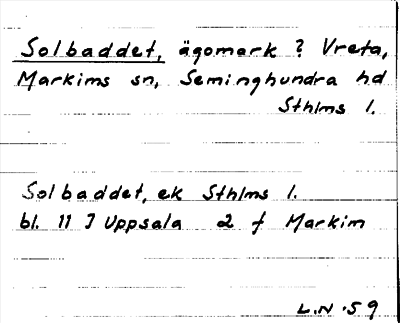 Solbaddet, ägomark ? Vreta,
Markims sn, Seminghundra hd
Sthlms l.
Solbaddet, ek Sthlms l.
bl. 11 J Uppsala 2 f Markim
L.N. 59